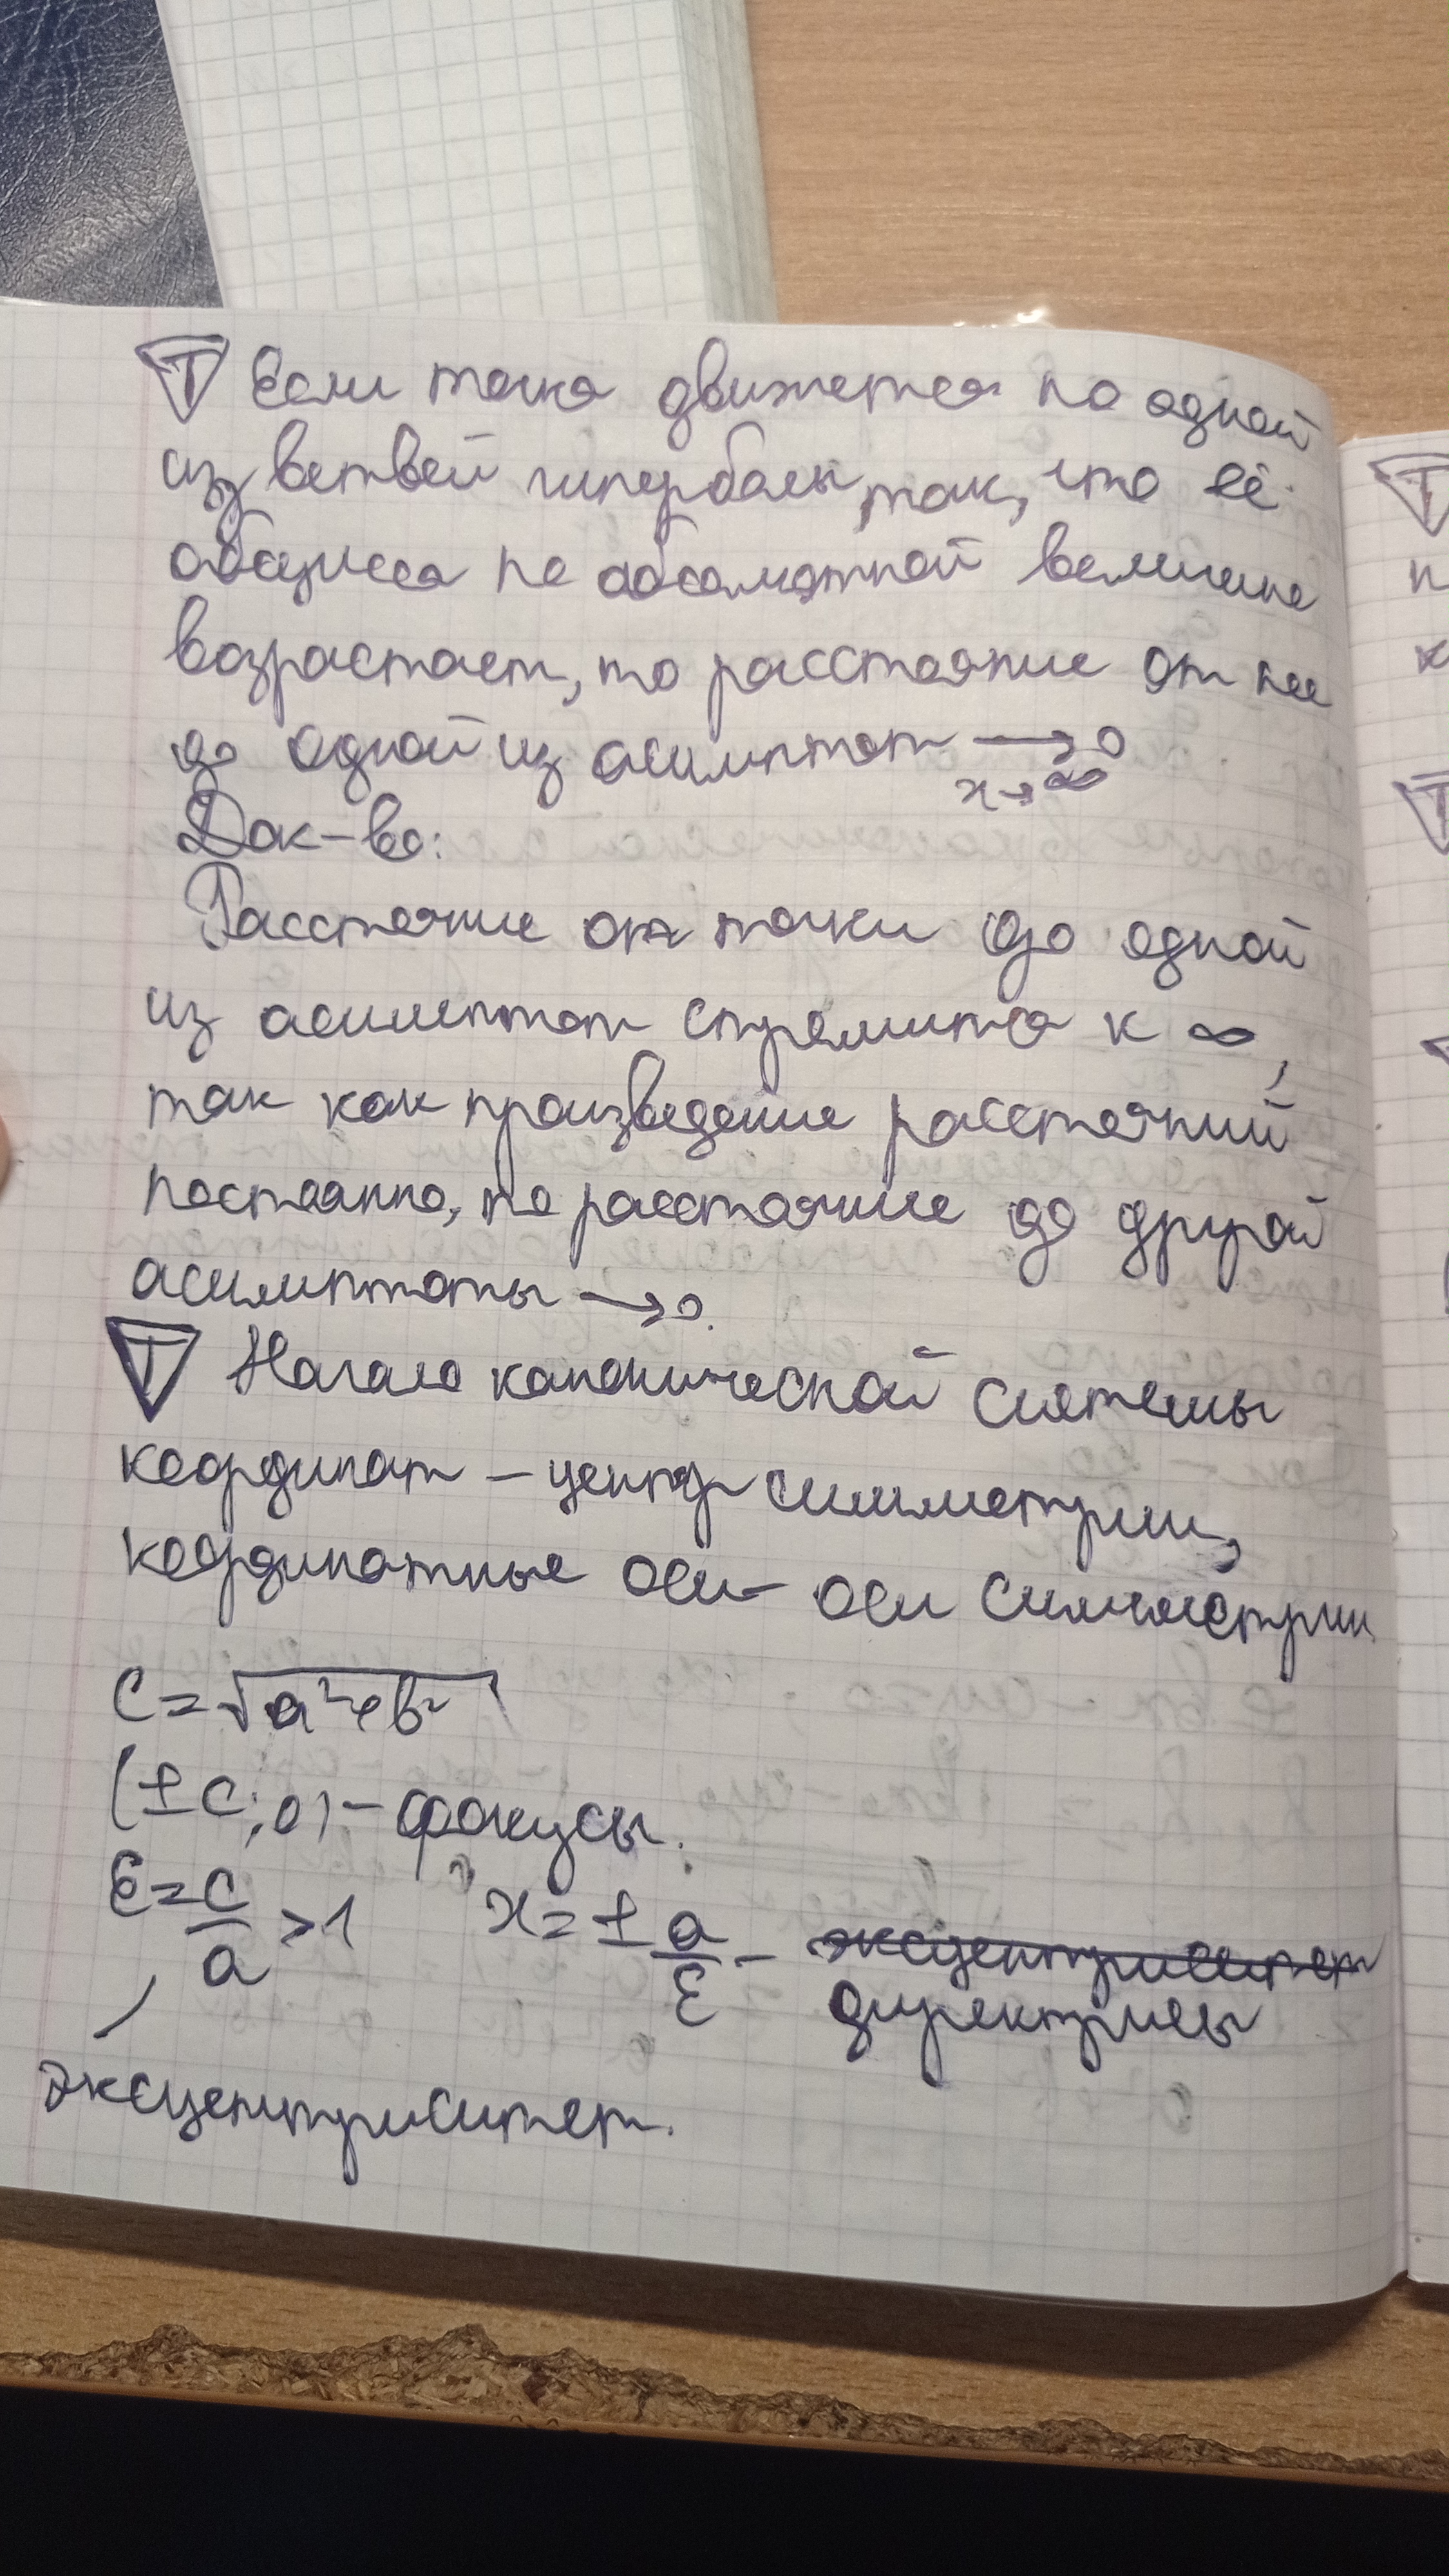 Т Если точка движется по одной
из ветвей гиперболы так, что её
абсцисса по абсолютной величине
возрастает, то расстояние от нее
до одной из асимптот → 0
x→∞
Док-во:
Расстояние от точки до одной
из асимптот стремится к ∞,
так как произведение расстояний
постоянно, то расстояние до другой
асимптоты → 0.
Т Начало канонической системы
координат – центр симметрии,
координатные оси – оси симметрии
c = √a²+b²
(±c; 0) – фокусы.
ε = c/a > 1 x = ± a/ε – эксцентриситет
директрисы
эксцентриситет.
Т
п
к
Т